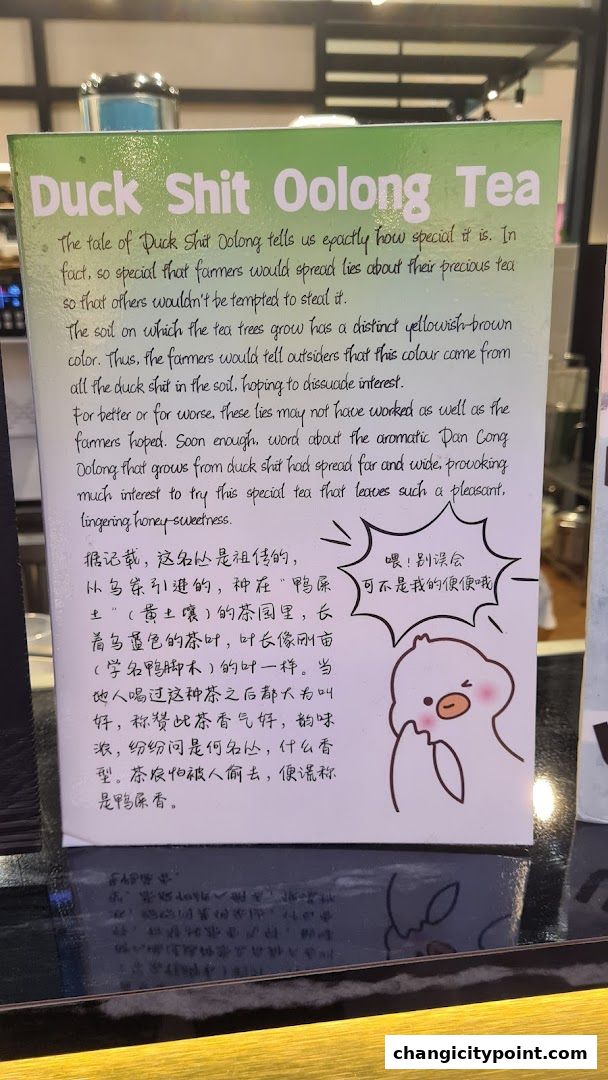 Duck Shit Oolong Tea
The tale of Duck Shit Oolong tells us exactly how special it is. In
fact, so special that farmers would spread lies about their precious tea
so that others wouldn't be tempted to steal it.
The soil on which the tea trees grow has a distinct yellowish-brown
color. Thus, the farmers would tell outsiders that this colour came from
all the duck shit in the soil, hoping to dissuade interest.
For better or for worse, these lies may not have worked as well as the
farmers hoped. Soon enough, word about the aromatic Dan Cong
Oolong that grows from duck shit had spread far and wide, provoking
much interest to try this special tea that leaves such a pleasant,
lingering honey-sweetness.
据记载，这名丛是祖传的，
从乌岽引进的，种在“鸭屎
土”（黄土壤）的茶园里，长
着乌蓝色的茶叶，叶长像刚亩
（学名鸭脚木）的叶一样。当
地人喝过这种茶之后都大为叫
好，称赞此茶香气好，韵味
浓，纷纷问是何名丛，什么香
型。茶农怕被人偷去，便谎称
是鸭屎香。
喂！别误会
可不是我的便便哦
changicitypoint.com